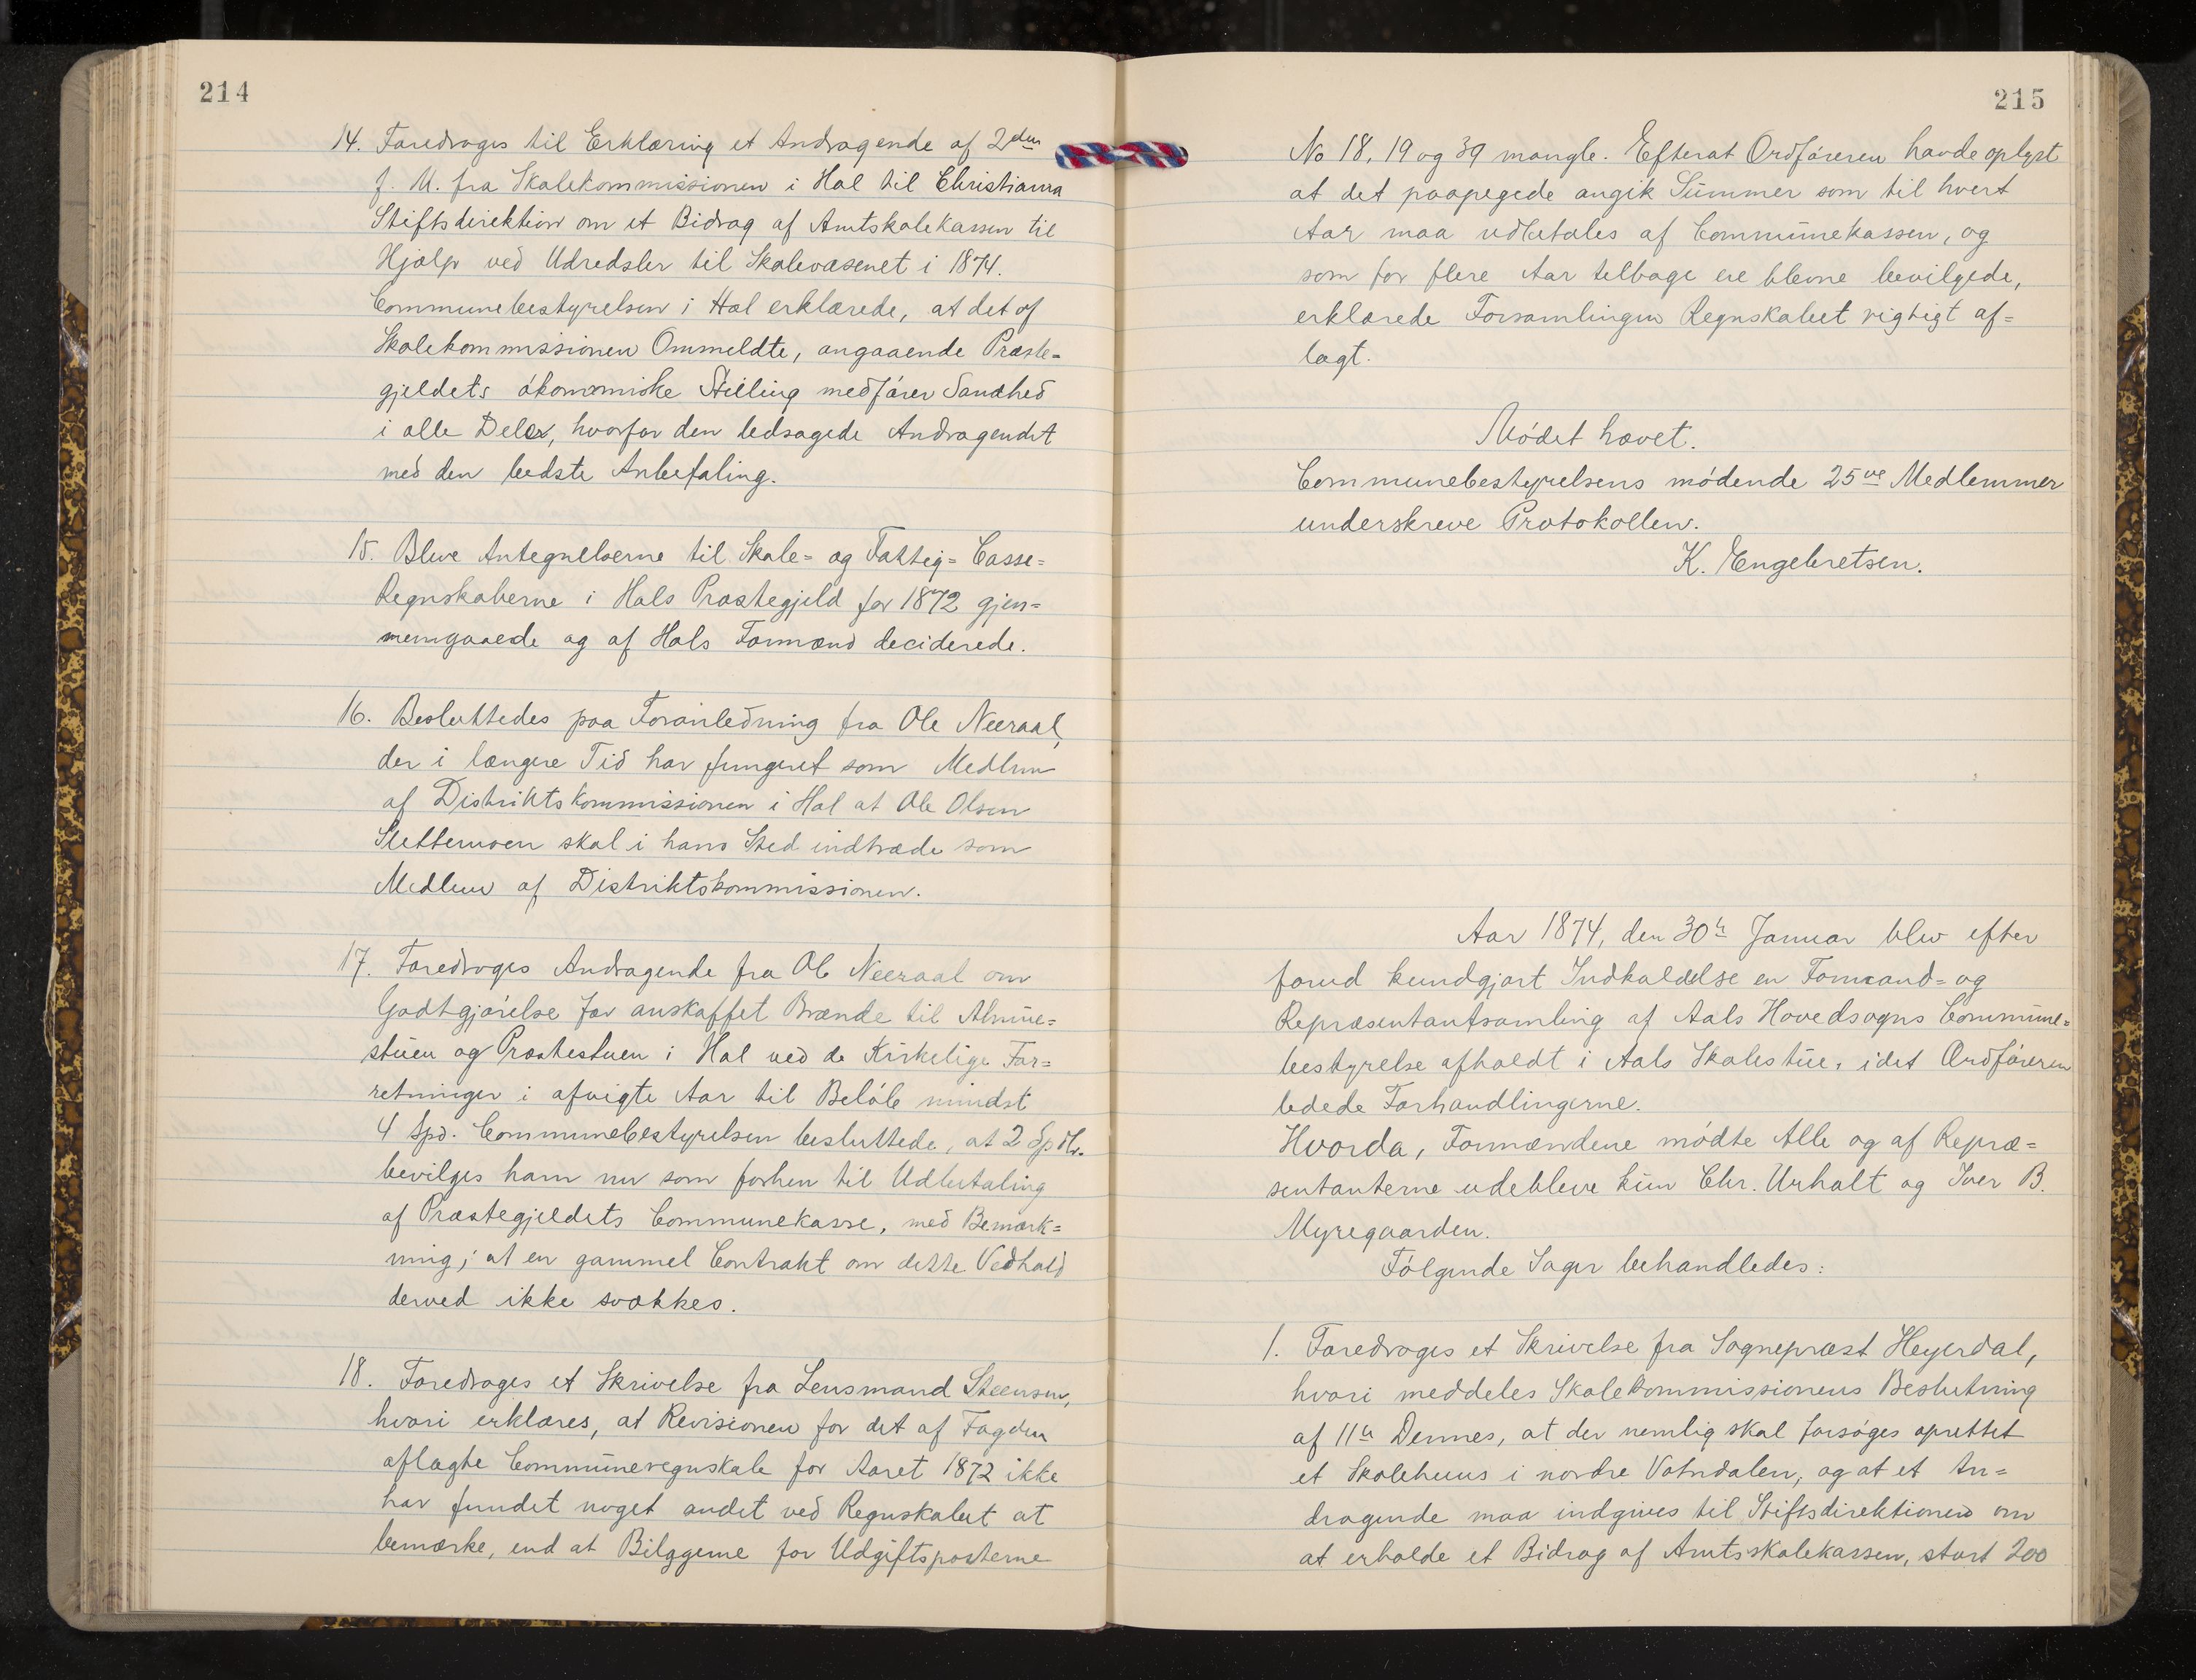 214
14. Foredroges til Erklæring et Andragende af 2den
f. M. fra Skolekommissionen i Hol til Christiania
Stiftsdirektion om et Bidrag af Amtskolekassen til
Hjælp ved Udredsler til Skolevæsenet i 1874.
Communebestyrelsen i Hol erklærede, at det af
Skolekommissionen Ommeldte, angaaende Præste=
gjeldets økonomiske Stilling medfører Sandhed
i alle Deler, hvorfor den ledsagede Andragendet
med den bedste Anbefaling.
15. Bleve Antegnelserne til Skole= og Fattig= Casse=
Regnskaberne i Hols Præstegjeld for 1872 gjen=
nemgaaede og af Hols Formænd deciderede.
16. Besluttedes paa Foranledning fra Ole Neeraal,
der i længere Tid har fungeret som Medlem
af Distriktskommissionen i Hol at Ole Olsen
Slettemoen skal i hans Sted indtræde som
Medlem af Distriktskommissionen.
17. Foredroges Andragende fra Ole Neeraal om
Godtgjørelse for anskaffet Brænde til Almue=
stuen og Præstestuen i Hol ved de Kirkelige For=
retninger i afvigte Aar til Beløb mindst
4 Spd. Communebestyrelsen besluttede, at 2 Spdlr.
bevilges ham nu som forhen til Udbetaling
af Præstegjeldets Communekasse, med Bemærk=
ning; at en gammel Contrakt om dette Vedhold
derved ikke svækkes.
18. Foredroges et Skrivelse fra Lensmand Steensen,
hvori erklæres, at Revisionen for det af Fogden
aflagte Communeregnskab for Aaret 1872 ikke
har fundet noget andet ved Regnskabet at
bemærke, end at Bilggerne for Udgiftsposterne
215
No 18, 19 og 39 mangle. Efterat Ordføreren havde oplyst
at det paapegede angik Summer som til hvert
Aar maa udbetales af Communekassen, og
som for flere Aar tilbage ere blevne bevilgede,
erklærede Forsamlingen Regnskabet rigtigt af=
lagt.
Mødet hævet.
Communebestyrelsens mødende 25ve Medlemmer
underskreve Protokollen.
K. Engebretsen.
Aar 1874, den 30te Januar blev efter
forud kundgjort Indkaldelse en Formand= og
Repræsentantsamling af Aals Hovedsogns Commune=
bestyrelse afholdt i Aals Skolestue, idet Ordføreren
ledede Forhandlingerne.
Hvorda, Formændene mødte Alle og af Repræ=
sentanterne udebleve kun Chr. Urholt og Iver B.
Myregaarden.
Følgende Sager behandledes:
1. Foredroges et Skrivelse fra Sognepræst Heyerdal,
hvori meddeles Skolekommissionens Beslutning
af 11te Dennes, at der nemlig skal forsøges oprettet
et Skolehuus i nordre Votndalen, og at et An=
dragende maa indgives til Stiftsdirektionen om
at erholde et Bidrag af Amtsskolekassen, stort 200